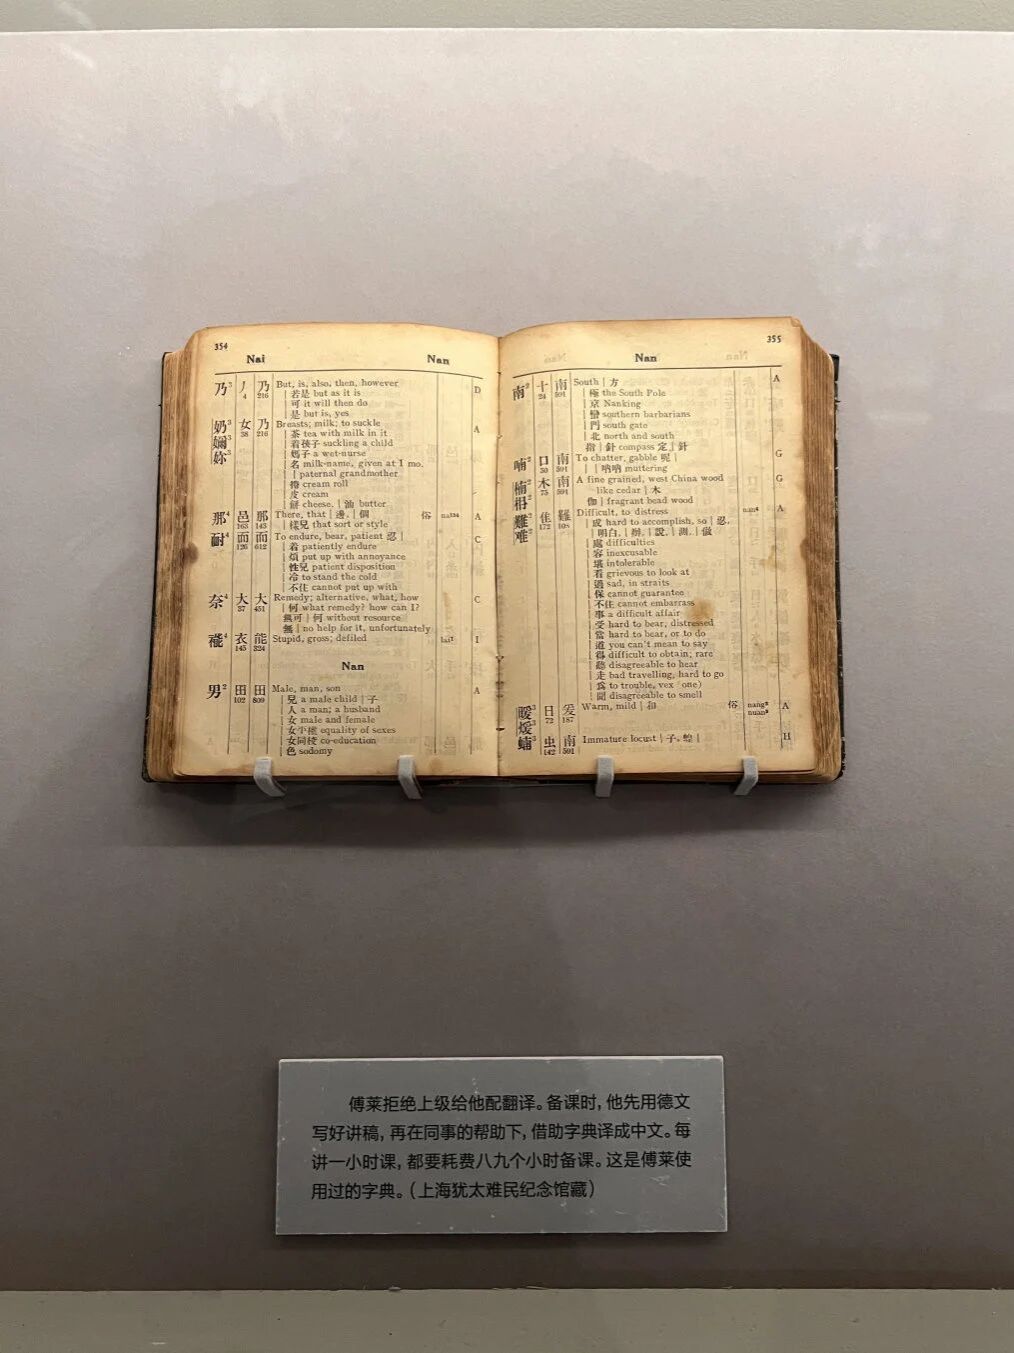 354
Nai Nan
乃³ 丿 乃 But, is, also, then, however D
4 216 | 若是 but as it is
| 可 it will then do
| 是 but is, yes
奶³ 女 乃 Breasts; milk; to suckle A
嬭³ 38 216 | 茶 tea with milk in it
妳³ | 着孩子 suckling a child
| 媽子 a wet-nurse
| 名 milk-name, given at 1 mo.
| | paternal grandmother
| 捲 cream roll
| 皮 cream
| 餅 cheese, | 油 butter
那⁴ 邑 那 There, that | 邊, | 個 俗 A
163 143 | 樣兒 that sort or style
耐⁴ 而 而 To endure, bear, patient 忍 | C
126 612 | 着 patiently endure
| 煩 put up with annoyance
| 性兒 patient disposition
| 冷 to stand the cold
| 不住 cannot put up with
奈⁴ 大 大 Remedy; alternative, what, how C
37 451 | 何 what remedy? how can I?
無可 | 何 without resource
無 | no help for it, unfortunately
褦⁴ 衣 能 Stupid, gross; defiled lai⁴ I
145 324
Nan
男² 田 田 Male, man, son A
102 809 | 兒 a male child | 子
| 人 a man; a husband
| 女 male and female
| 女平權 equality of sexes
| 女同校 co-education
| 色 sodomy
355
Nan
南² 十 南 South | 方 A
24 591 | 極 the South Pole
| 京 Nanking
| 蠻 southern barbarians
| 門 south gate
| 北 north and south
指 | 針 compass 定 | 針
喃² 口 南 To chatter, gabble 呢 | G
30 591 | | 吶吶 muttering
楠² 木 南 A fine grained, west China wood G
枏² 75 591 like cedar | 木
伽 | fragrant bead wood
難² 隹 難 Difficult, to distress nan⁴ A
难² 172 | 成 hard to accomplish, so | 忍,
| 明白, | 辦, | 說, | 測, | 做
| 處 difficulties
| 容 inexcusable
| 堪 intolerable
| 看 grievous to look at
| 過 sad, in straits
| 保 cannot guarantee
| 不住 cannot embarrass
| 事 a difficult affair
| 受 hard to bear, distressed
| 當 hard to bear, or to do
| 道 you can't mean to say
| 得 difficult to obtain; rare
| 聽 disagreeable to hear
| 走 bad travelling, hard to go
| 爲 to trouble, vex (one)
| 聞 disagreeable to smell
暖³ 日 爰 Warm, mild | 和 俗 nang³ A
煖³ 72 187 nuan³
蝻³ 虫 南 Immature locust | 子, 蝗 | H
142 591
傅莱拒绝上级给他配翻译。备课时，他先用德文
写好讲稿，再在同事的帮助下，借助字典译成中文。每
讲一小时课，都要耗费八九个小时备课。这是傅莱使
用过的字典。（上海犹太难民纪念馆藏）